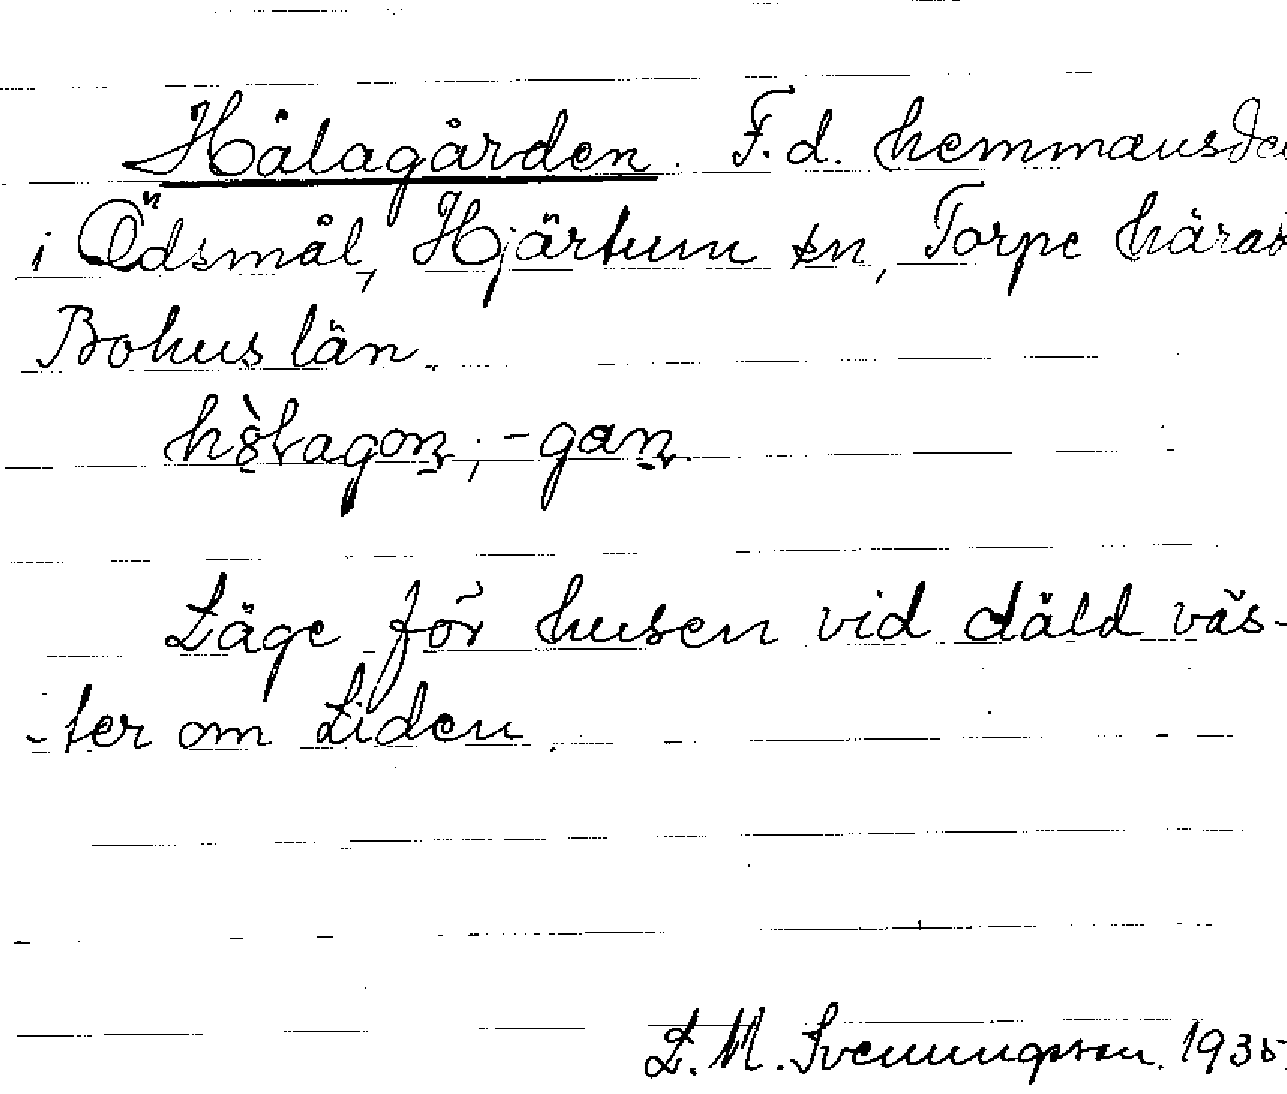 Hålagården. F.d. hemmansde
i Ödsmål, Hjärtum sn, Torpe härad
Bohuslän.
-gan
Läge för husen vid däld väs-
-ter om Liden.
L. M. Svenningsson. 1935.